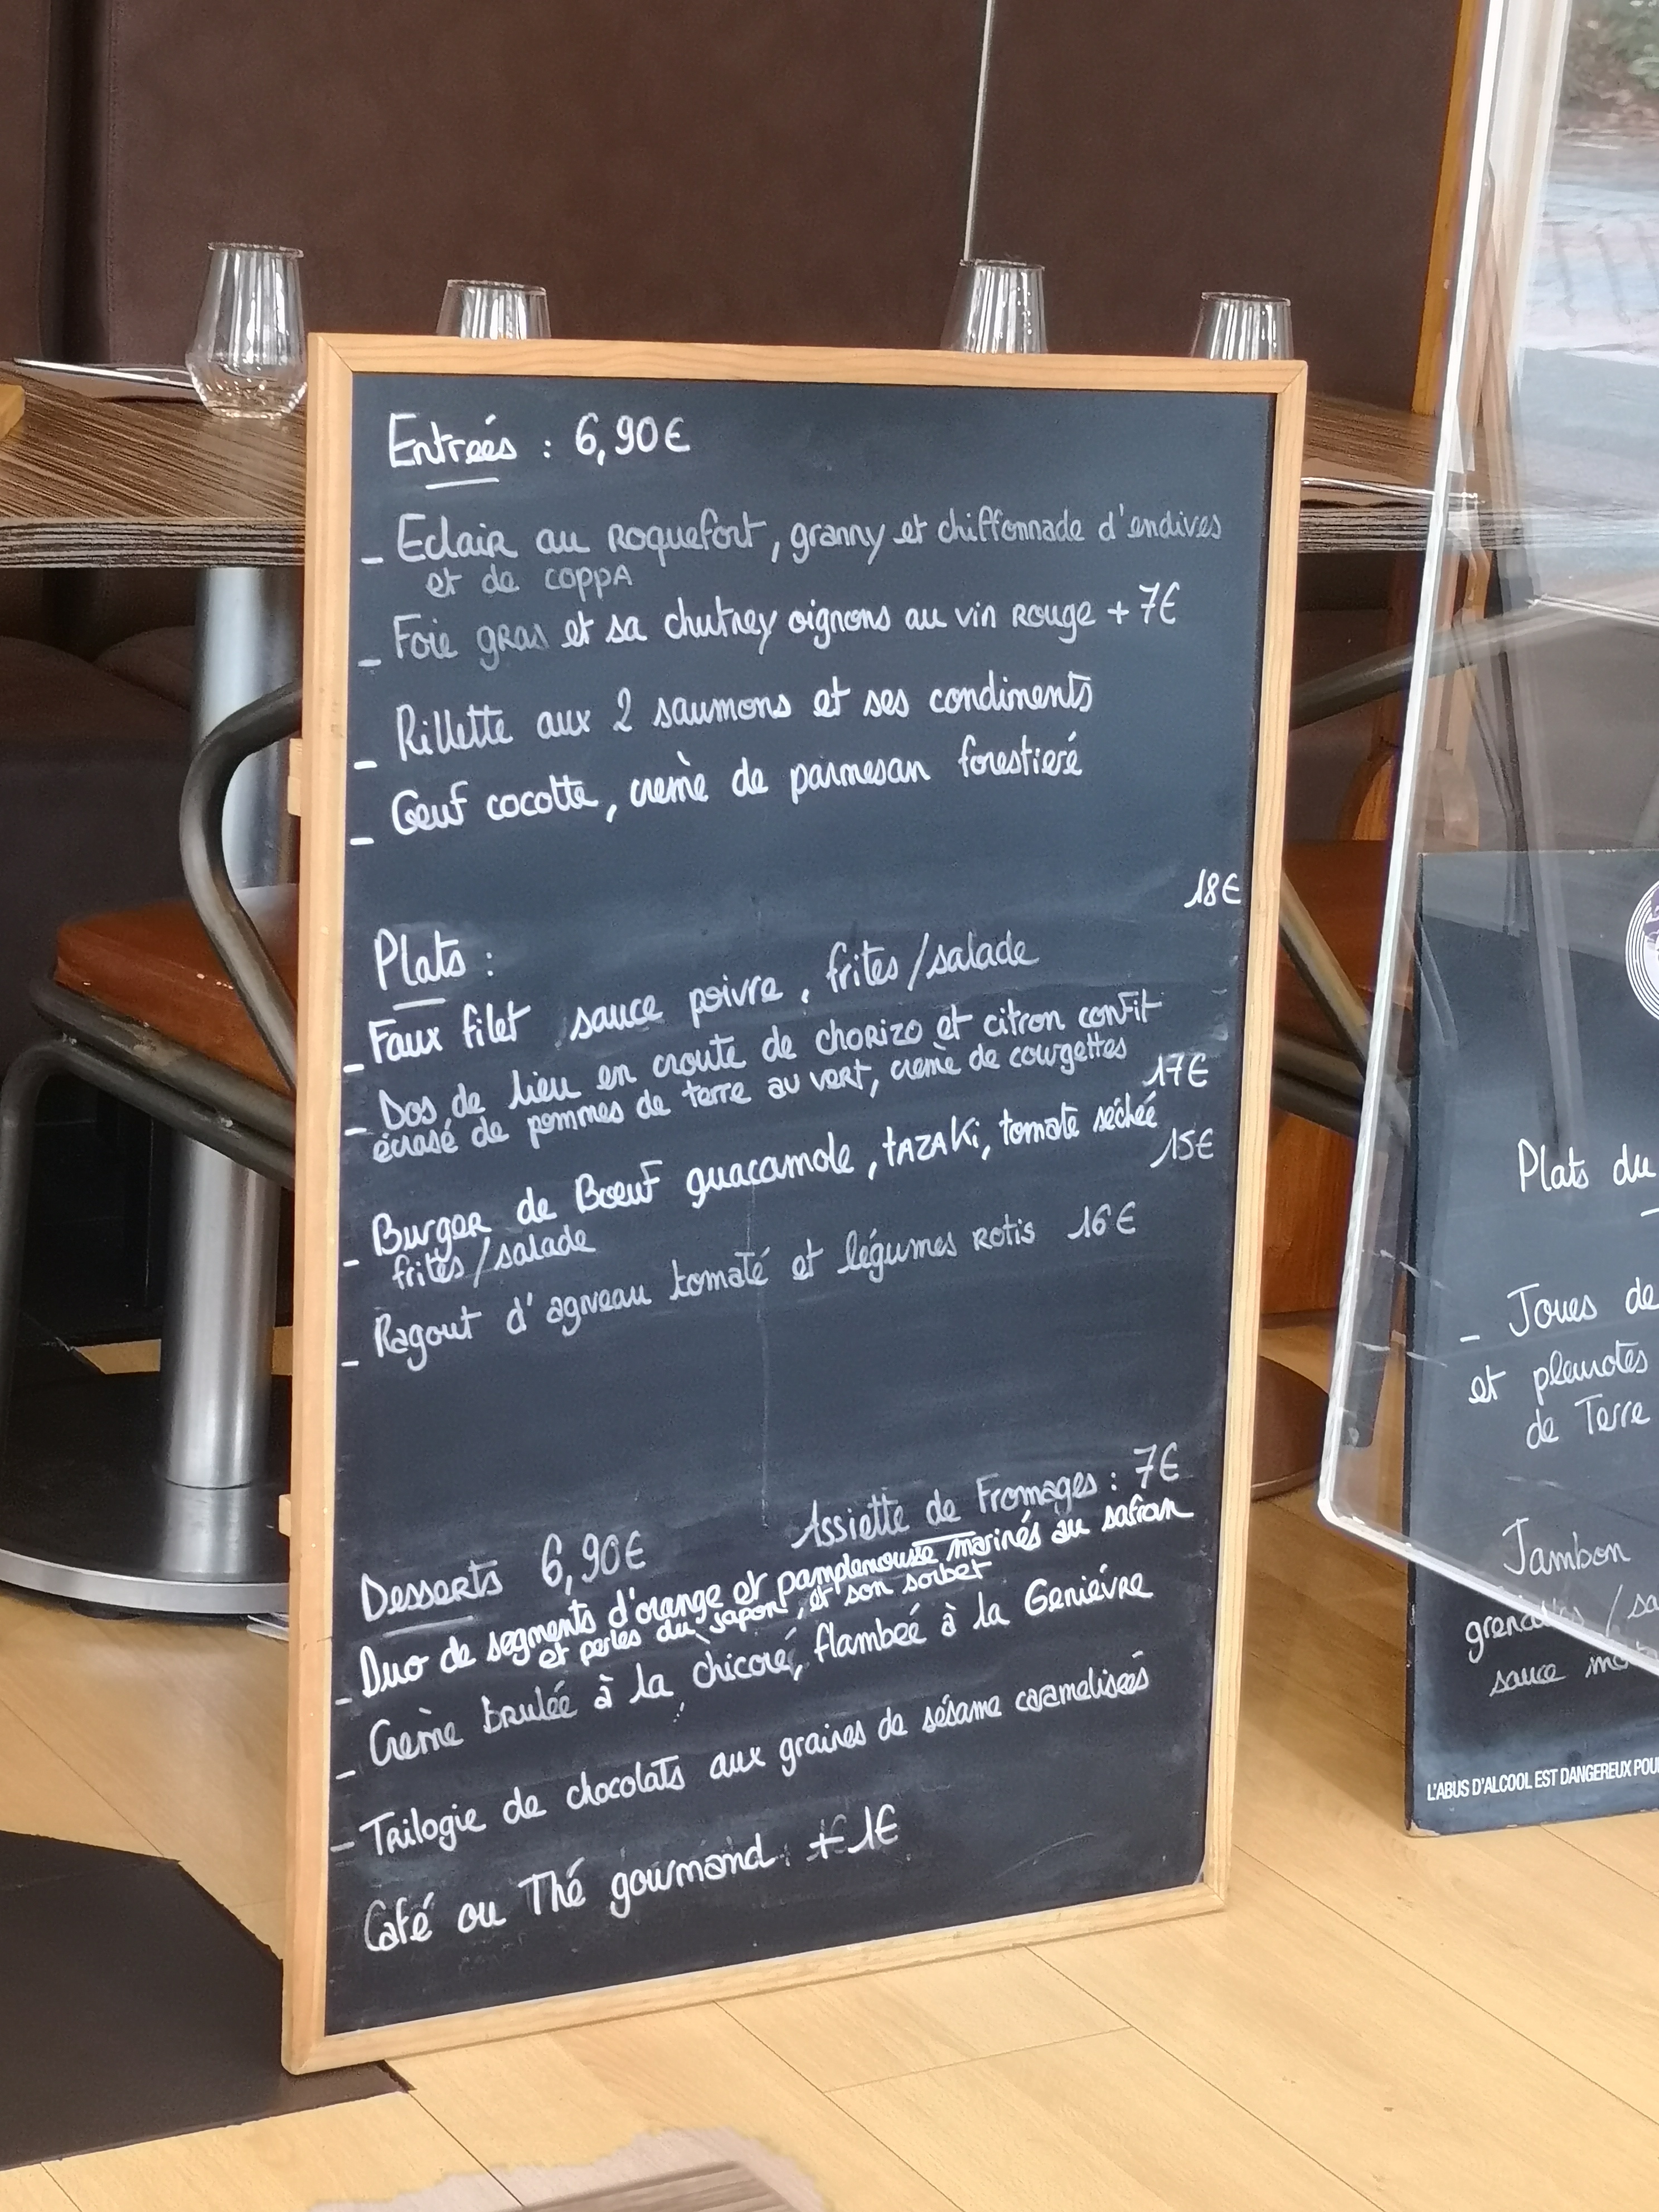 Entreés : 6,90€
_ Eclair au Roquefort, granny et chiffonnade d'endives
et de coppA
_ Foie gras et sa chutney oignons au vin Rouge + 7€
_ Rillette aux 2 saumons et ses condiments
_ Oeuf cocotte, crème de parmesan forestieré
18€
Plats :
_ Faux filet sauce poivre, frites/salade
_ Dos de lieu en croute de chorizo et citron confit
écrasé de pommes de terre au vert, crème de courgettes
17€
_ Burger de Bœuf guacamole, tAZAKi, tomate séchée
15€
frites/salade
_ Ragout d'agneau tomaté et légumes Rotis 16€
Assiette de Fromages : 7€
Desserts 6,90€
_ Duo de segments d'orange et pamplemousse marinés au safran
et perles du japon, et son sorbet
_ Crème brulée à la chicoré, flambeé à la Genièvre
_ Trilogie de chocolats aux graines de sésame carameliseés
Café ou Thé gourmand : +1€
Plats du
_ Joues de
et pleurotes
de Terre
Jambon
/sa
sauce
L'ABUS D'ALCOOL EST DANGEREUX POU